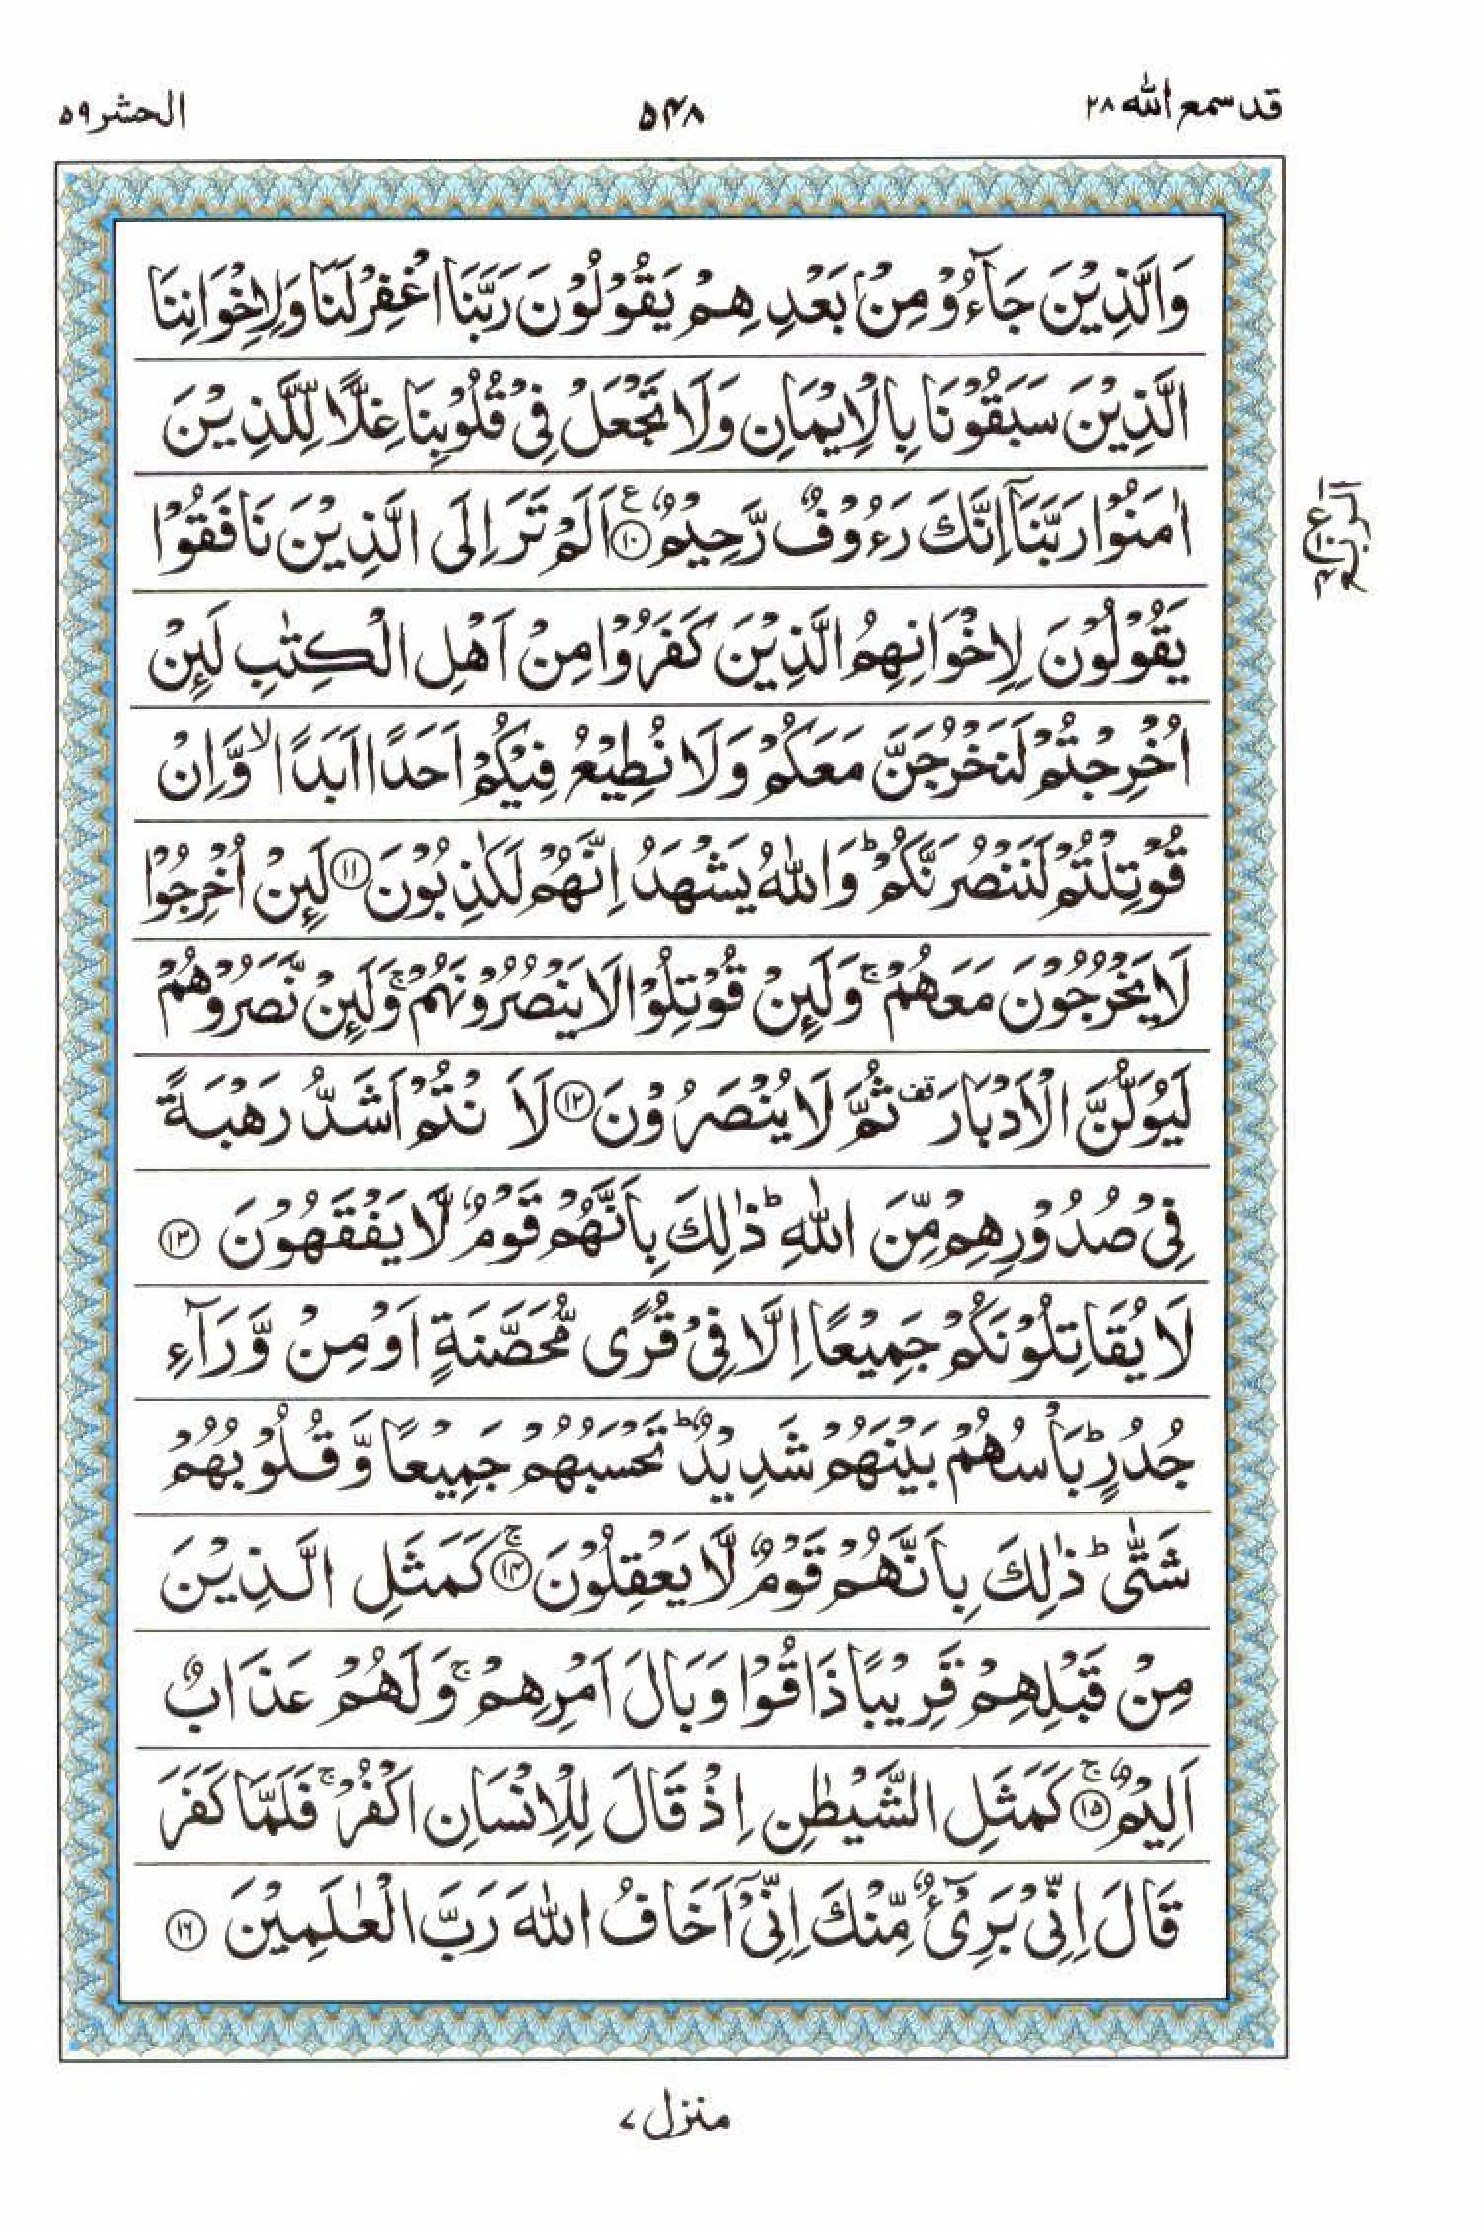 قد سمع الله ٢٨
۵۴۸
الحشر ۵۹
وَالَّذِيْنَ جَآءُوْ مِنْۢ بَعْدِهِمْ يَقُوْلُوْنَ رَبَّنَا اغْفِرْ لَنَا وَلِاِخْوَانِنَا
الَّذِيْنَ سَبَقُوْنَا بِالْاِيْمَانِ وَلَا تَجْعَلْ فِيْ قُلُوْبِنَا غِلًّا لِّلَّذِيْنَ
اٰمَنُوْا رَبَّنَاۤ اِنَّكَ رَءُوْفٌ رَّحِيْمٌ ﴿۱۰﴾ اَلَمْ تَرَ اِلَى الَّذِيْنَ نَافَقُوْا
يَقُوْلُوْنَ لِاِخْوَانِهِمُ الَّذِيْنَ كَفَرُوْا مِنْ اَهْلِ الْكِتٰبِ لَئِنْ
اُخْرِجْتُمْ لَنَخْرُجَنَّ مَعَكُمْ وَلَا نُطِيْعُ فِيْكُمْ اَحَدًا اَبَدًا ۙ وَّاِنْ
قُوْتِلْتُمْ لَنَنْصُرَنَّكُمْ ؕ وَاللّٰهُ يَشْهَدُ اِنَّهُمْ لَكٰذِبُوْنَ ﴿۱۱﴾ لَئِنْ اُخْرِجُوْا
لَا يَخْرُجُوْنَ مَعَهُمْ ۚ وَلَئِنْ قُوْتِلُوْا لَا يَنْصُرُوْنَهُمْ ۚ وَلَئِنْ نَّصَرُوْهُمْ
لَيُوَلُّنَّ الْاَدْبَارَ قف ثُمَّ لَا يُنْصَرُوْنَ ﴿۱۲﴾ لَاَنْتُمْ اَشَدُّ رَهْبَةً
فِيْ صُدُوْرِهِمْ مِّنَ اللّٰهِ ؕ ذٰلِكَ بِاَنَّهُمْ قَوْمٌ لَّا يَفْقَهُوْنَ ﴿۱۳﴾
لَا يُقَاتِلُوْنَكُمْ جَمِيْعًا اِلَّا فِيْ قُرًى مُّحَصَّنَةٍ اَوْ مِنْ وَّرَآءِ
جُدُرٍ ؕ بَاْسُهُمْ بَيْنَهُمْ شَدِيْدٌ ؕ تَحْسَبُهُمْ جَمِيْعًا وَّقُلُوْبُهُمْ
شَتّٰى ؕ ذٰلِكَ بِاَنَّهُمْ قَوْمٌ لَّا يَعْقِلُوْنَ ﴿۱۴﴾ ۚ كَمَثَلِ الَّذِيْنَ
مِنْ قَبْلِهِمْ قَرِيْبًا ذَاقُوْا وَبَالَ اَمْرِهِمْ ۚ وَلَهُمْ عَذَابٌ
اَلِيْمٌ ﴿۱۵﴾ ۚ كَمَثَلِ الشَّيْطٰنِ اِذْ قَالَ لِلْاِنْسَانِ اكْفُرْ ۚ فَلَمَّا كَفَرَ
قَالَ اِنِّيْ بَرِيْٓءٌ مِّنْكَ اِنِّيْۤ اَخَافُ اللّٰهَ رَبَّ الْعٰلَمِيْنَ ﴿۱۶﴾
منزل ۷